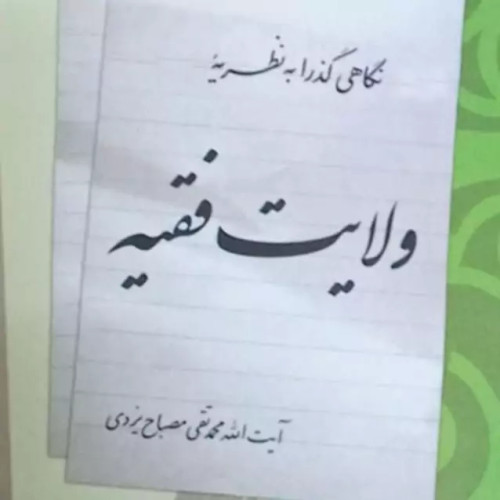 نگاهی گذرا به نظریهٔ
ولایت فقیه
آیت الله محمد تقی مصباح یزدی